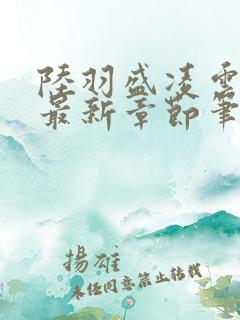 陸羽盛凌雲
最新章節筆
揚雄
未经同意禁止转载